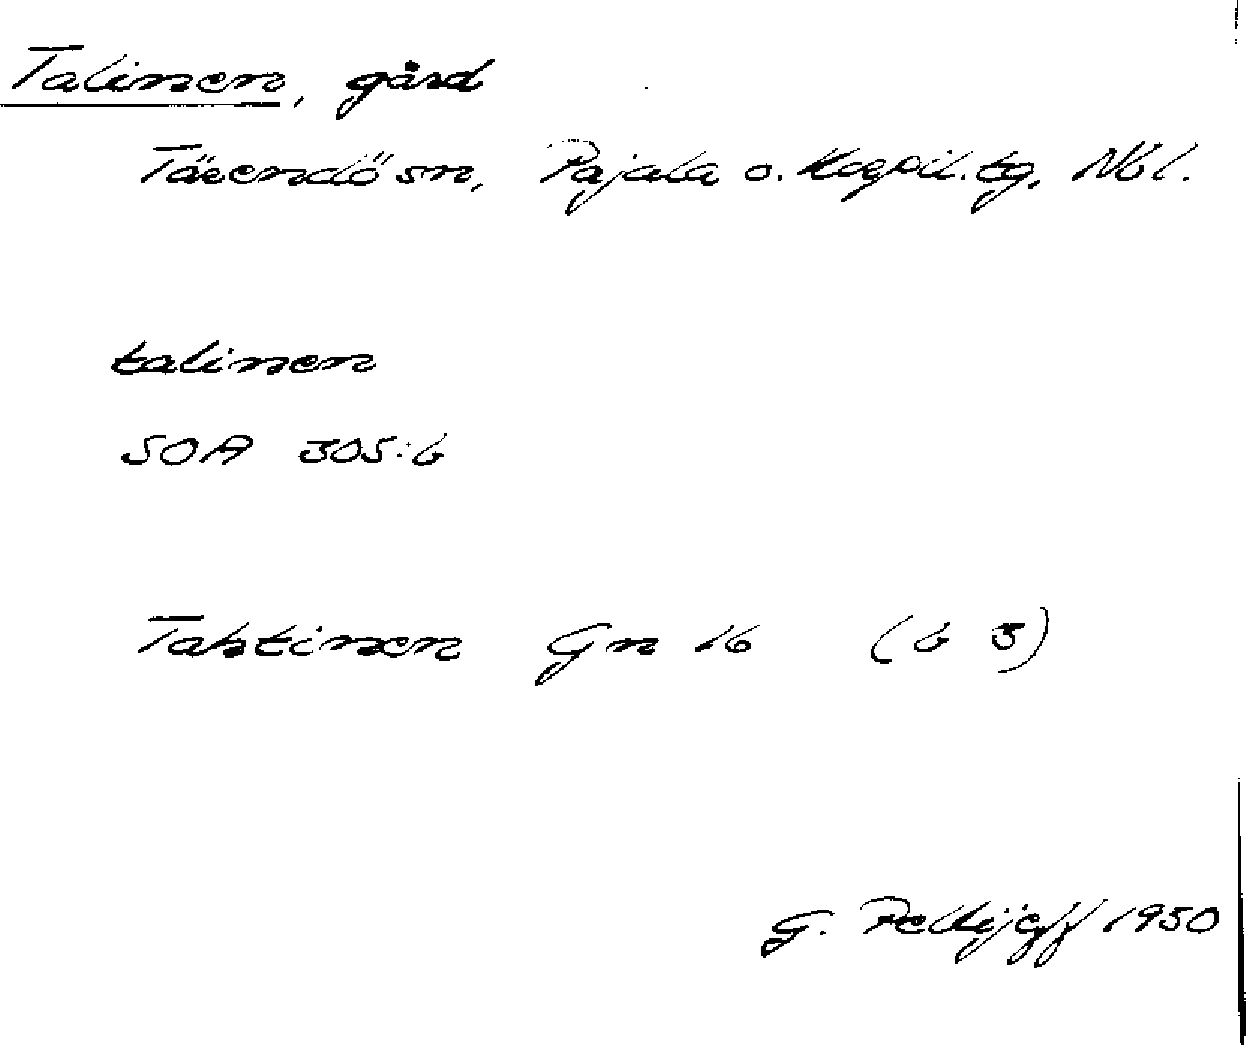 Talinen, gård
Tärendö sn, Pajala o. Korpil. tg, Nbl.
talinen
SOA 305:6
Tahtinen Gn 16 (6 3)
G. Pellijeff 1950